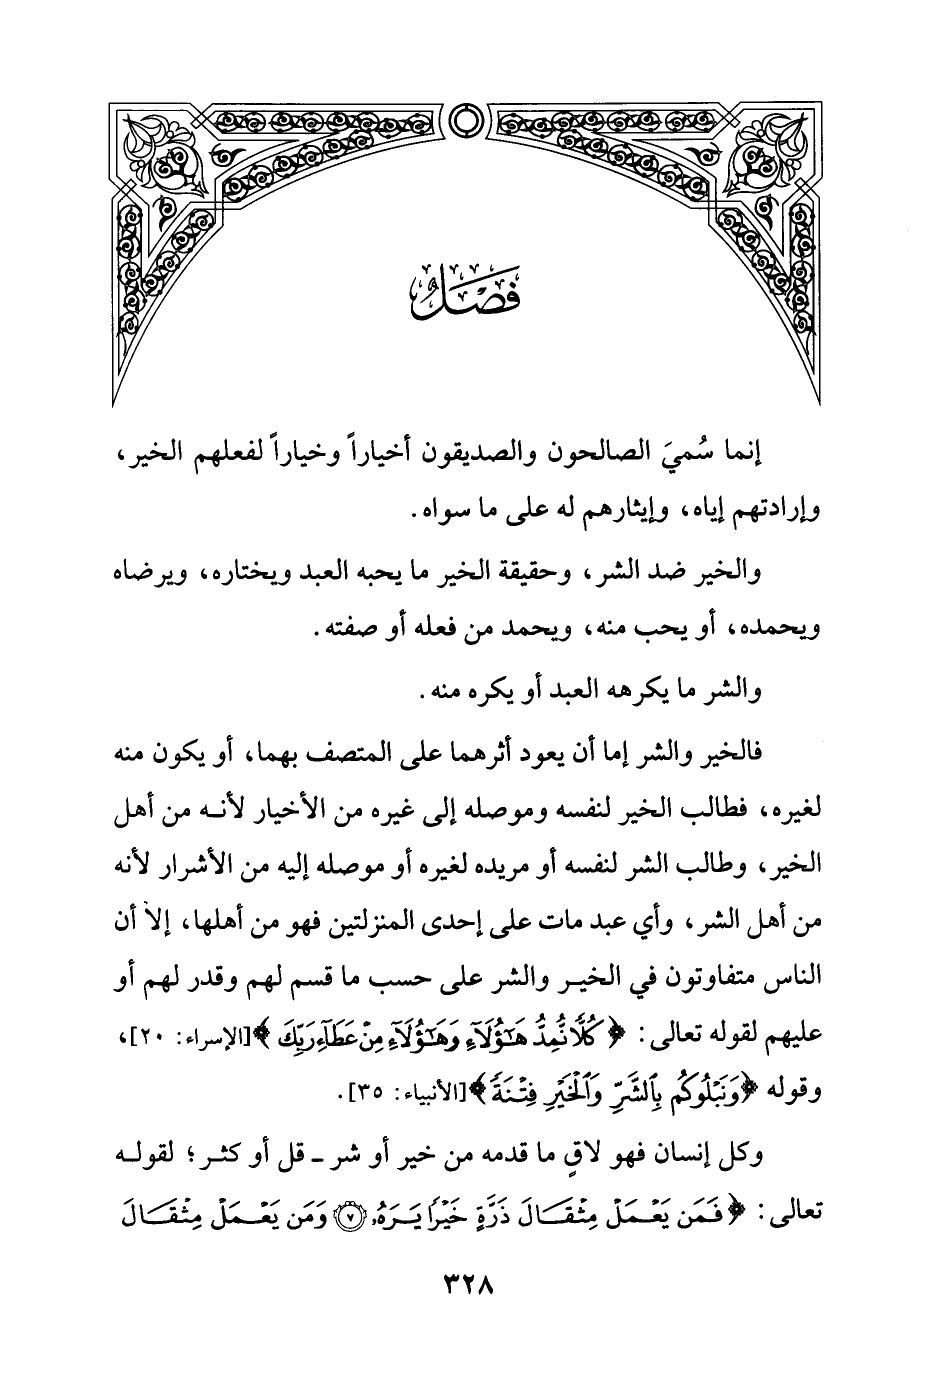 فَصْلٌ
إنما سُميَ الصالحون والصديقون أخياراً وخياراً لفعلهم الخير،
وإرادتهم إياه، وإيثارهم له على ما سواه.
والخير ضد الشر، وحقيقة الخير ما يحبه العبد ويختاره، ويرضاه
ويحمده، أو يحب منه، ويحمد من فعله أو صفته.
والشر ما يكرهه العبد أو يكره منه.
فالخير والشر إما أن يعود أثرهما على المتصف بهما، أو يكون منه
لغيره، فطالب الخير لنفسه وموصله إلى غيره من الأخيار لأنه من أهل
الخير، وطالب الشر لنفسه أو مريده لغيره أو موصله إليه من الأشرار لأنه
من أهل الشر، وأي عبد مات على إحدى المنزلتين فهو من أهلها، إلا أن
الناس متفاوتون في الخير والشر على حسب ما قسم لهم وقدر لهم أو
عليهم لقوله تعالى: ﴿كُلًّا نُّمِدُّ هَٰٓؤُلَآءِ وَهَٰٓؤُلَآءِ مِنْ عَطَآءِ رَبِّكَ﴾ [الإسراء: ٢٠]،
وقوله ﴿وَنَبْلُوكُم بِٱلشَّرِّ وَٱلْخَيْرِ فِتْنَةً﴾ [الأنبياء: ٣٥].
وكل إنسان فهو لاقٍ ما قدمه من خير أو شر ـ قل أو كثر؛ لقوله
تعالى: ﴿فَمَن يَعْمَلْ مِثْقَالَ ذَرَّةٍ خَيْرًا يَرَهُۥ ٧ وَمَن يَعْمَلْ مِثْقَالَ
٣٢٨